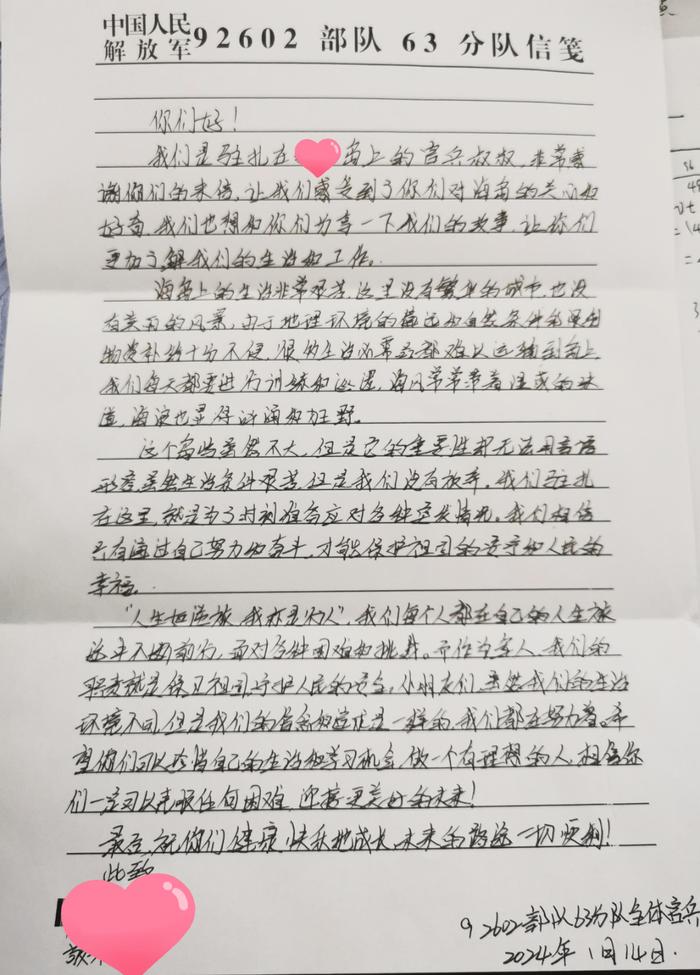 中国人民
解放军92602 部队 63 分队信笺
你们好！
我们是驻扎在 岛上的官兵叔叔，非常感
谢你们的来信，让我们感受到了你们对海岛的关心和
好奇，我们也想和你们分享一下我们的故事，让你们
更加了解我们的生活和工作。
海岛上的生活非常艰苦，这里没有繁华的城市，也没
有美丽的风景，由于地理环境的偏远和自然条件的限制
物资补给十分不便，很多生活必需品都难以运输到岛上，
我们每天都要进行训练和巡逻，海风常常带着湿咸的味
道，海浪也显得汹涌和狂野。
这个岛屿虽然不大，但是它的重要性却无法用言语
形容，虽然生活条件艰苦，但是我们没有放弃，我们驻扎
在这里，就是为了时刻准备应对各种突发情况。我们相信
只有通过自己努力和奋斗，才能保护祖国的安宁和人民的
幸福。
“人生如逆旅，我亦是行人”，我们每个人都在自己的人生旅
途中不断前行，面对各种困难和挑战。而作为军人，我们的
职责就是保卫祖国，守护人民的安全，小朋友们，虽然我们的生活
环境不同，但是我们的信念和追求是一样的，我们都在努力着。希
望你们可以珍惜自己的生活和学习机会，做一个有理想的人，相信你
们一定可以克服任何困难，迎接更美好的未来！
最后，祝你们健康、快乐地成长，未来的路途一切顺利！
此致
敬
92602部队63分队全体官兵
2024年1月14日.